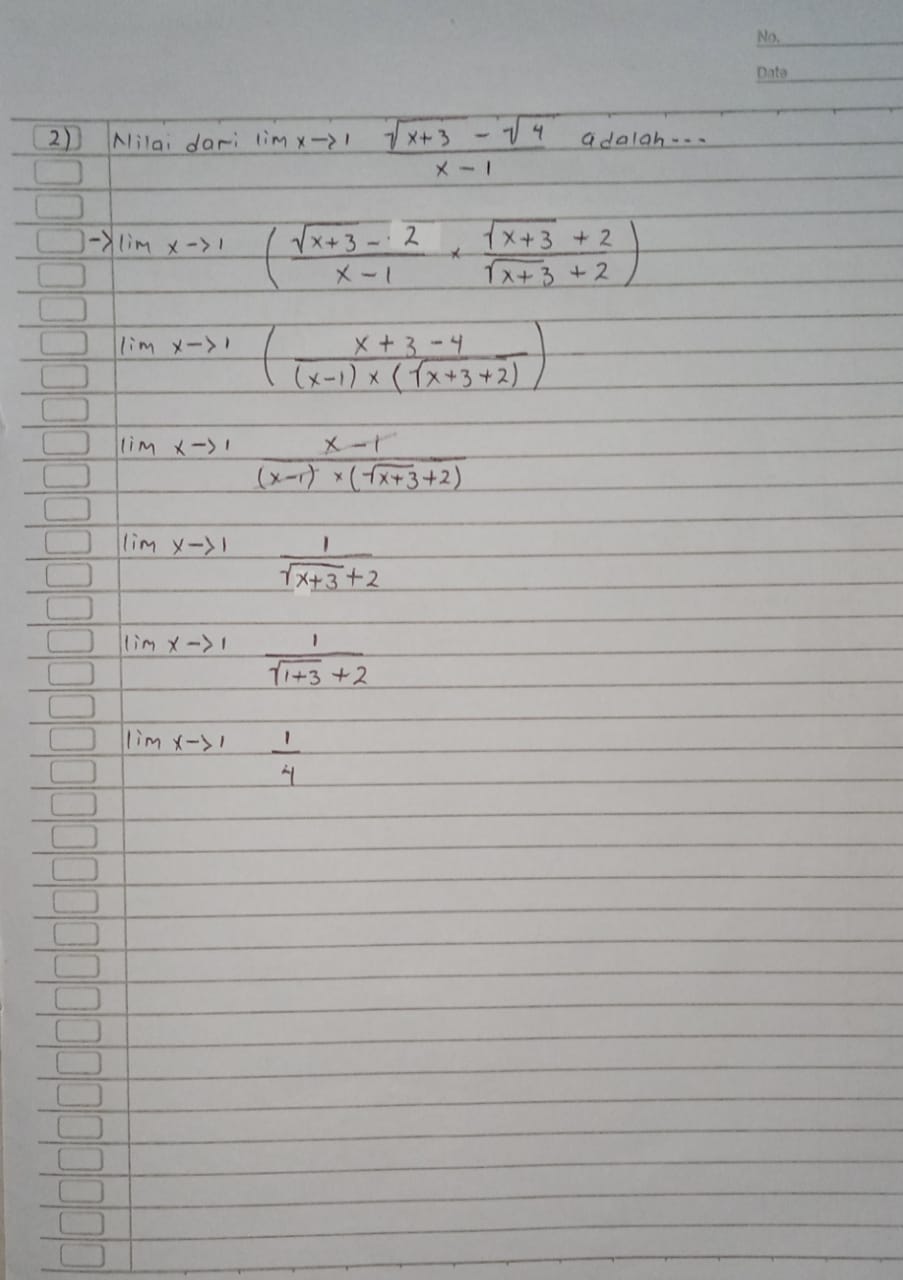 No.
Date
2) Nilai dari lim x->1 (√(x+3) - √4)/(x - 1) adalah...
-> lim x->1 ((√(x+3) - 2)/(x - 1) × (√(x+3) + 2)/(√(x+3) + 2))
lim x->1 ((x + 3 - 4)/((x-1) × (√(x+3+2)))
lim x->1 (x - 1)/((x-1) × (√(x+3)+2))
lim x->1 1/(√(x+3) + 2)
lim x->1 1/(√(1+3) + 2)
lim x->1 1/4